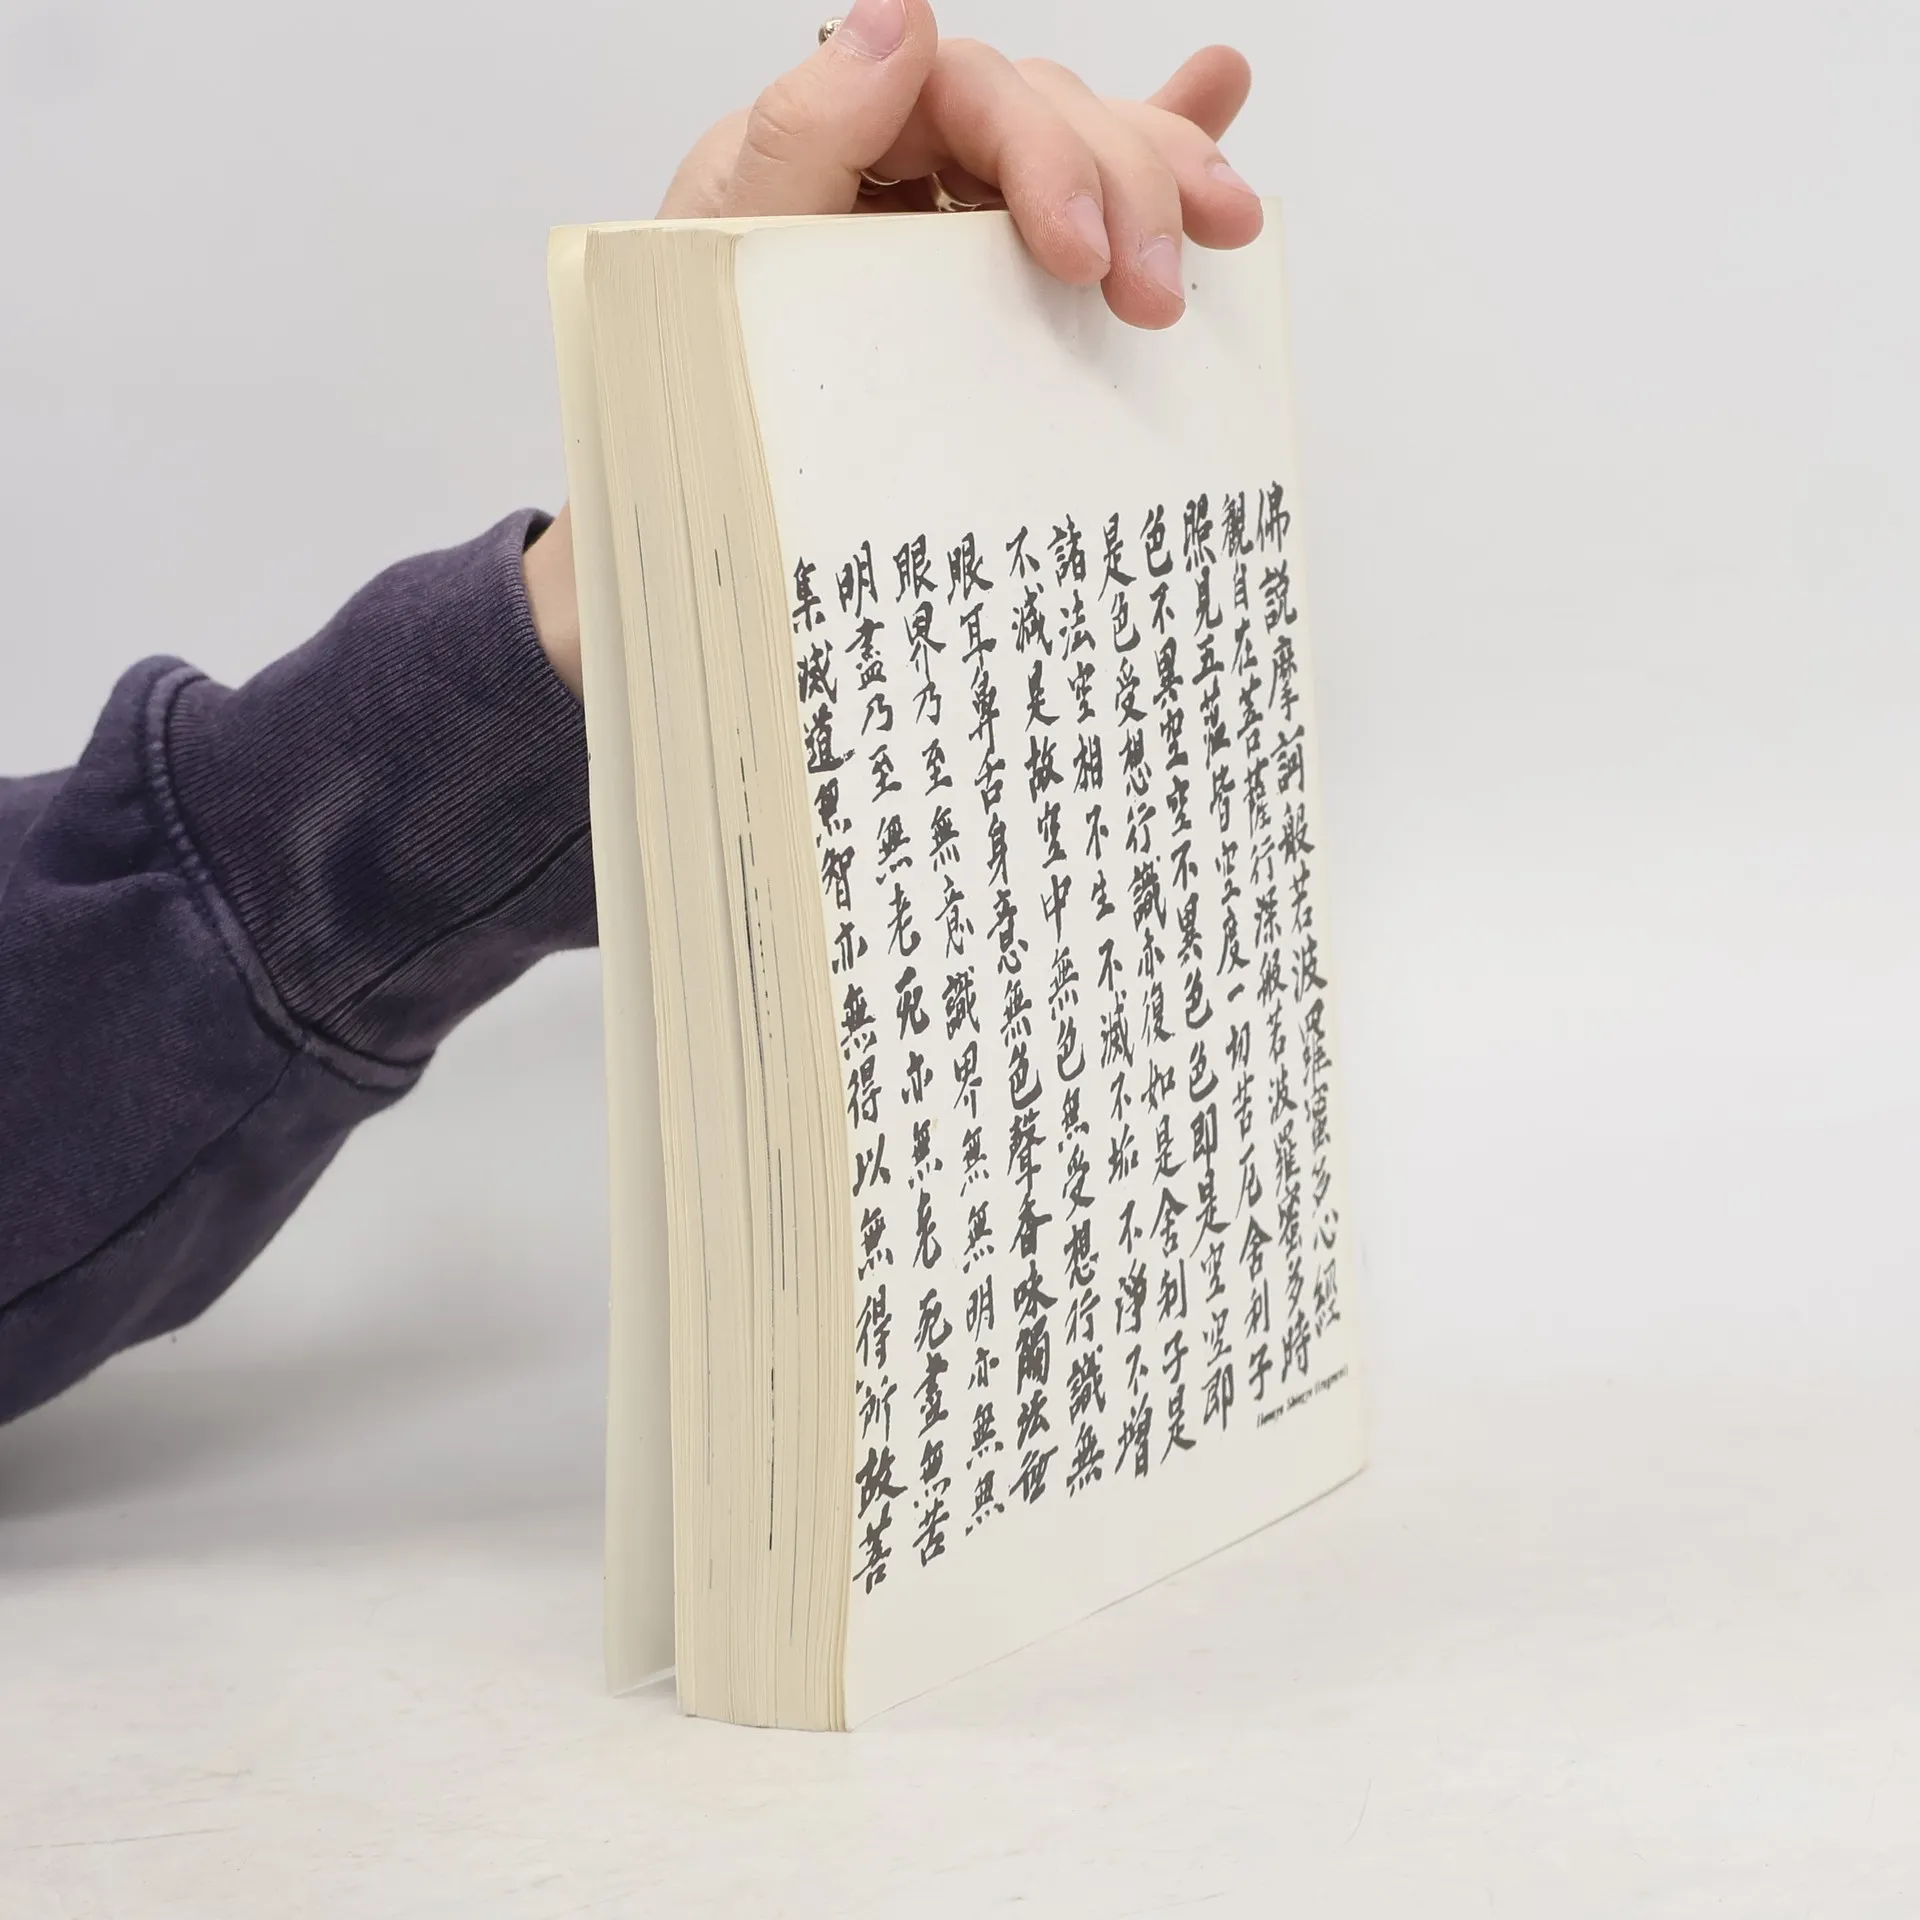 佛説摩訶般若波羅蜜多心經
觀自在菩薩行深般若波羅蜜多時
照見五蘊皆空度一切苦厄舍利子
色不異空空不異色色即是空空即
是色受想行識亦復如是舍利子是
諸法空相不生不滅不垢不淨不增
不減是故空中無色無受想行識無
眼耳鼻舌身意無色聲香味觸法無
眼界乃至無意識界無無明亦無無
明盡乃至無老死亦無老死盡無苦
集滅道無智亦無得以無得所故菩
(fragment)